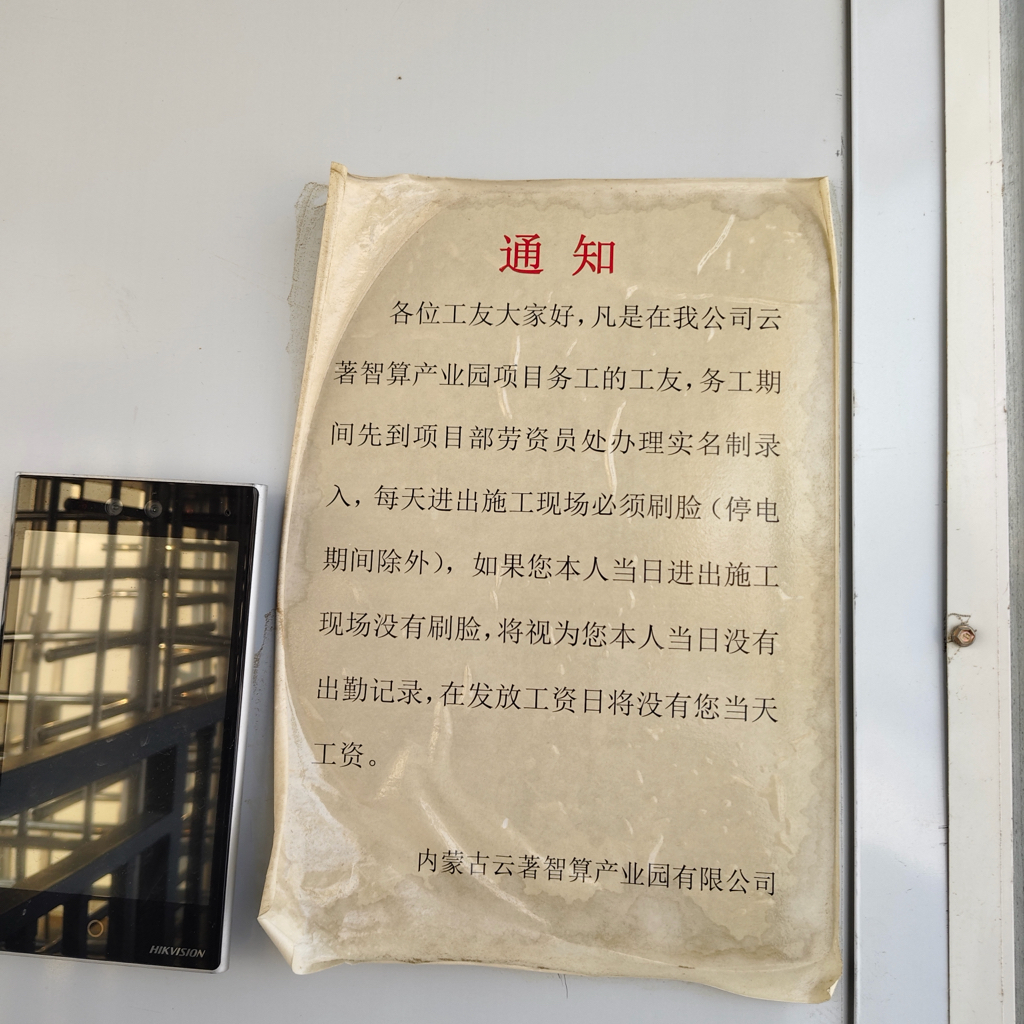 通 知
各位工友大家好,凡是在我公司云
著智算产业园项目务工的工友,务工期
间先到项目部劳资员处办理实名制录
入,每天进出施工现场必须刷脸(停电
期间除外),如果您本人当日进出施工
现场没有刷脸,将视为您本人当日没有
出勤记录,在发放工资日将没有您当天
工资。
内蒙古云著智算产业园有限公司
HIKVISION